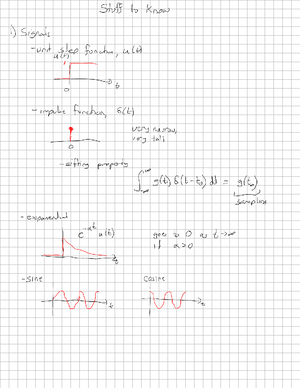 Stuff to Know
1) Signals
- unit step function, u(t)
u(t)
0
t
- impulse function, δ(t)
very narrow,
very tall
0
- sifting property
∫ g(t) δ(t-t₀) dt = g(t₀)
sampling
- exponential
e^-at u(t)
goes to 0 as t→∞
if a>0
t
- sine
cosine
t
t